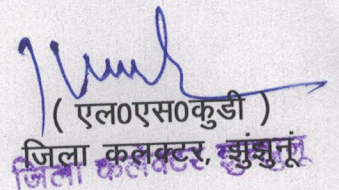 ( एल0एस0कुडी )
जिला कलक्टर, झुंझुनूं
जिला कलक्टर झुंझुनू